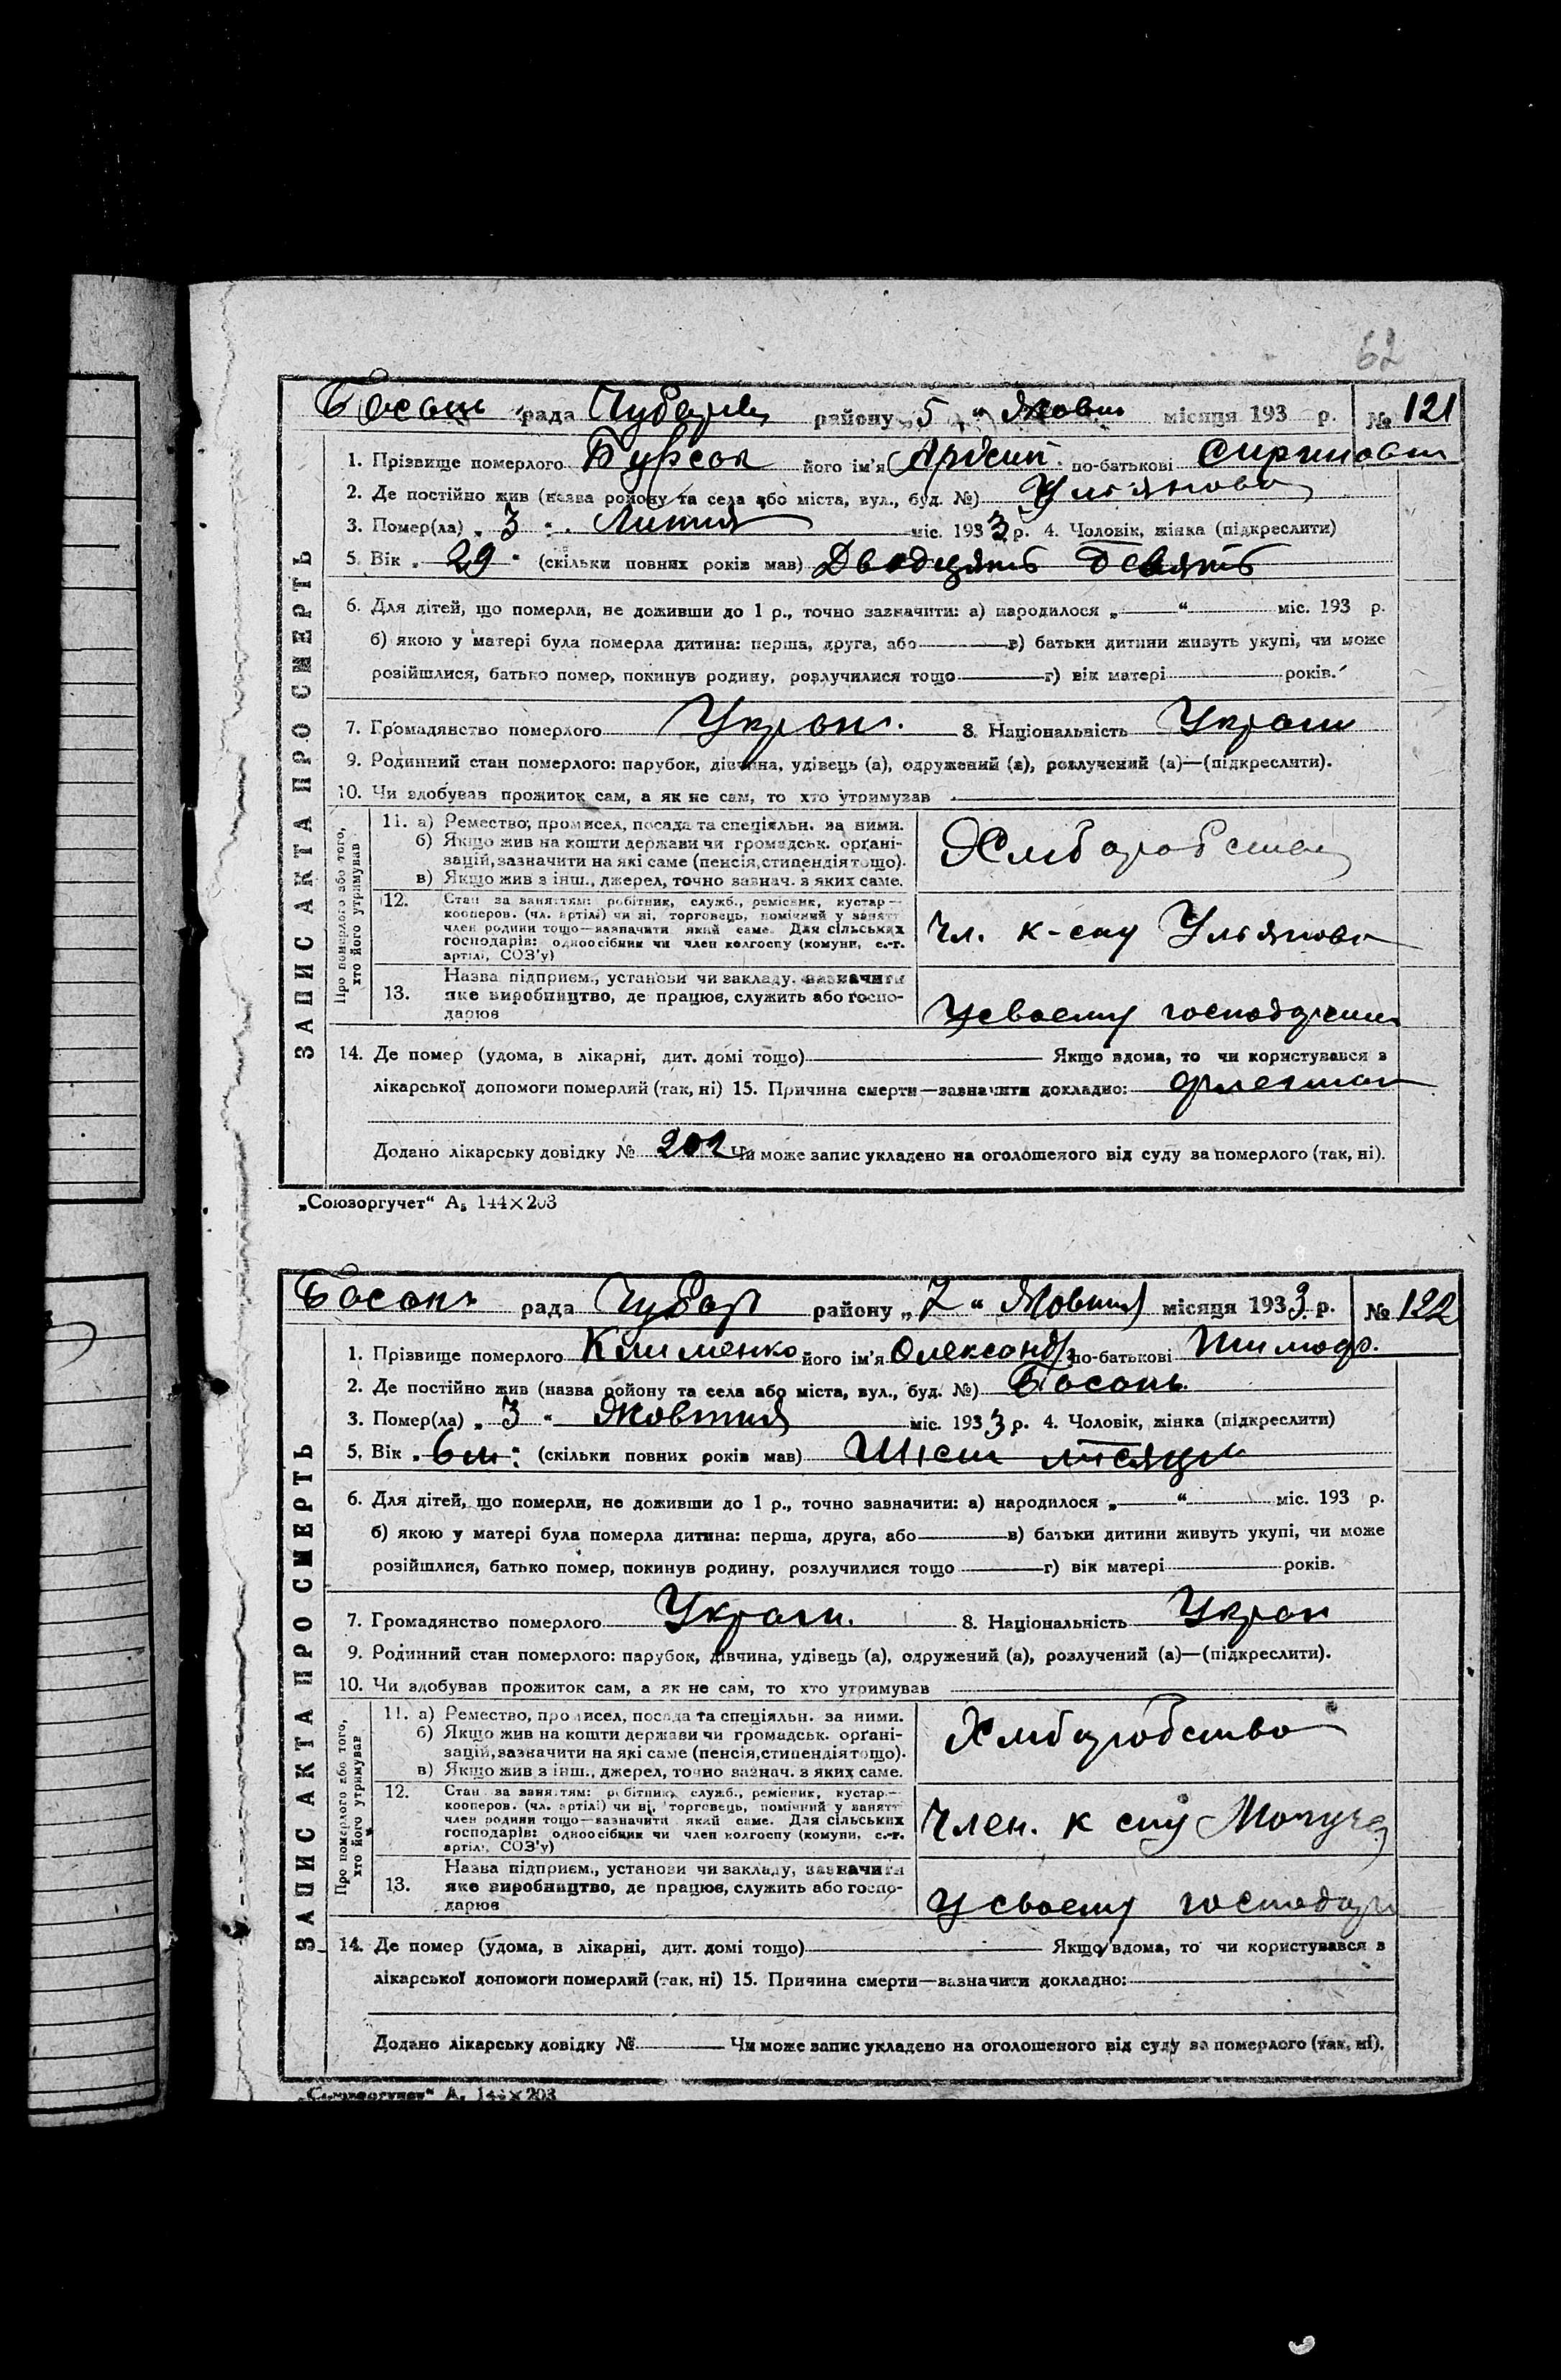 62
Басань рада Чубарів району „5“ Жовт місяця 193 р. № 121
ЗАПИС АКТА ПРО СМЕРТЬ
1. Прізвище померлого його ім'я по-батькові
2. Де постійно жив (назва ройону та села або міста, вул., буд. №) Ульянова
3. Помер(ла) „3“ Липня міс. 1933 р. 4. Чоловік, жінка (підкреслити)
5. Вік „29“ (скільки повних років мав) Двадцять девять
6. Для дітей, що померли, не доживши до 1 р., точно зазначити: а) народилося „ “ міс. 193 р.
б) якою у матері була померла дитина: перша, друга, або в) батьки дитини живуть укупі, чи може
розійшлися, батько помер, покинув родину, розлучилися тощо г) вік матері років.
7. Громадянство померлого Украи. 8. Національність Украи
9. Родинний стан померлого: парубок, дівчина, удівець (а), одружений (а), розлучений (а)—(підкреслити).
10. Чи здобував прожиток сам, а як не сам, то хто утримував
Про померлого або того, хто його утримував
11. а) Ремество, промисел, посада та спеціяльн. за ними.
б) Якщо жив на кошти держави чи громадськ. орґані-
зацій, зазначити на які саме (пенсія, стипендія тощо).
в) Якщо жив з інш., джерел, точно зазнач. з яких саме.
Хліборобство
12. Стан за заняттям: робітник, служб., ремісник, кустар—
кооперов. (чл. артілі) чи ні, торговець, помічний у занятт
член родини тощо—зазначити який саме. Для сільських
господарів: одноосібник чи член колгоспу (комуни, с.-г.
артілі, СОЗ'у)
Чл. к-спу Ульянова
13. Назва підприєм., установи чи закладу, зазначити
яке виробництво, де працює, служить або госпо-
дарює
У своему
14. Де помер (удома, в лікарні, дит. домі тощо) Якщо вдома, то чи користувався з
лікарської допомоги померлий (так, ні) 15. Причина смерти—зазначити докладно:
Додано лікарську довідку № 202 Чи може запис укладено на оголошеного від суду за померлого (так, ні).
„Союзоргучет“ А5 144×203
Басань рада Чубар району „7“ Жовтня місяця 1933 р. № 122
ЗАПИС АКТА ПРО СМЕРТЬ
1. Прізвище померлого Клименко його ім'я Олександр по-батькові Тимоф.
2. Де постійно жив (назва ройону та села або міста, вул., буд. №) Басань
3. Помер(ла) „3“ Жовтня міс. 1933 р. 4. Чоловік, жінка (підкреслити)
5. Вік „6 м“ (скільки повних років мав) Шість місяців
6. Для дітей, що померли, не доживши до 1 р., точно зазначити: а) народилося „ “ міс. 193 р.
б) якою у матері була померла дитина: перша, друга, або в) батьки дитини живуть укупі, чи може
розійшлися, батько помер, покинув родину, розлучилися тощо г) вік матері років.
7. Громадянство померлого Украи. 8. Національність Украи
9. Родинний стан померлого: парубок, дівчина, удівець (а), одружений (а), розлучений (а)—(підкреслити).
10. Чи здобував прожиток сам, а як не сам, то хто утримував
Про померлого або того, хто його утримував
11. а) Ремество, промисел, посада та спеціяльн. за ними.
б) Якщо жив на кошти держави чи громадськ. орґані-
зацій, зазначити на які саме (пенсія, стипендія тощо).
в) Якщо жив з інш., джерел, точно зазнач. з яких саме.
Хліборобство
12. Стан за заняттям: робітник, служб., ремісник, кустар—
кооперов. (чл. артілі) чи ні, торговець, помічний у занятт
член родини тощо—зазначити який саме. Для сільських
господарів: одноосібник чи член колгоспу (комуни, с.-г.
артілі, СОЗ'у)
Член. к спу
13. Назва підприєм., установи чи закладу, зазначити
яке виробництво, де працює, служить або госпо-
дарює
У своему господар
14. Де помер (удома, в лікарні, дит. домі тощо) Якщо вдома, то чи користувався з
лікарської допомоги померлий (так, ні) 15. Причина смерти—зазначити докладно:
Додано лікарську довідку № Чи може запис укладено на оголошеного від суду за померлого (так, ні).
„Союзоргучет“ А5 144×203